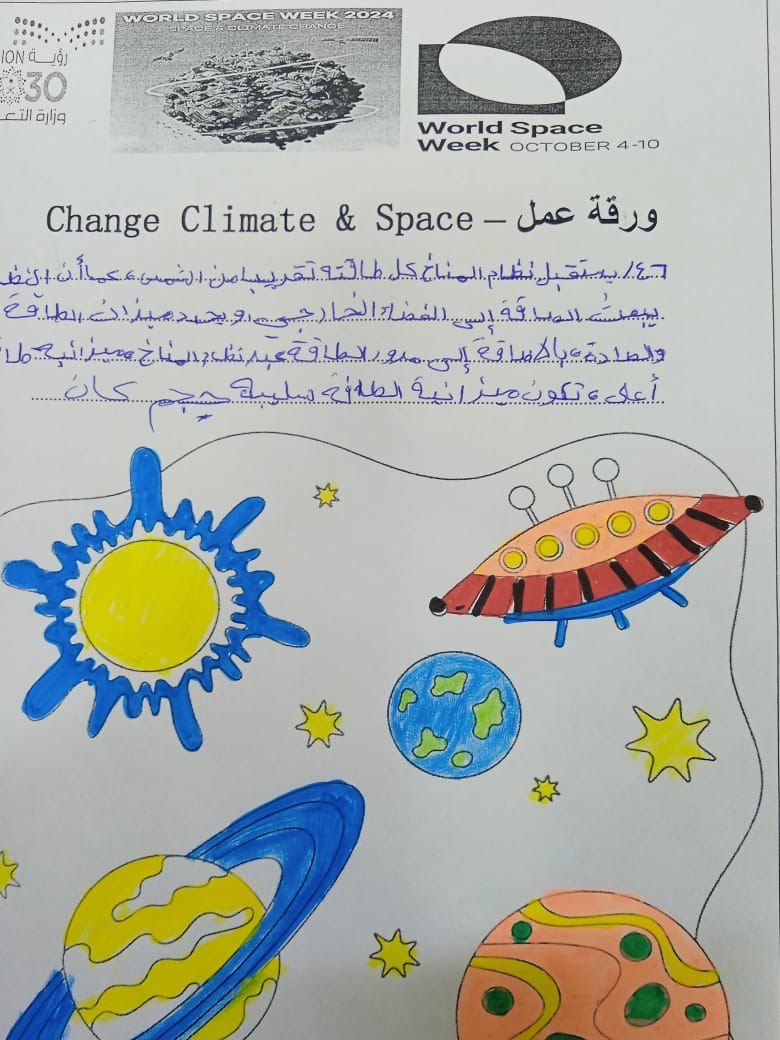 ION رؤيـــة
30
وزارة التعـ
WORLD SPACE WEEK 2024
SPACE & CLIMATE CHANGE
World Space
Week OCTOBER 4-10
Change Climate & Space – ورقة عمل
يستقبل نظام المناخ كل طاقته تقريبا من الشمس، كما أن النظ
يبعث الطاقة إلى الفضاء الخارجي، ويحدد ميزان الطاقة
والصادرة، بالإضاقة إلى مرور الطاقة عبر نظام المناخ، ميزانية طا
أعلى، وتكون ميزانية الطاقة سلبية كان